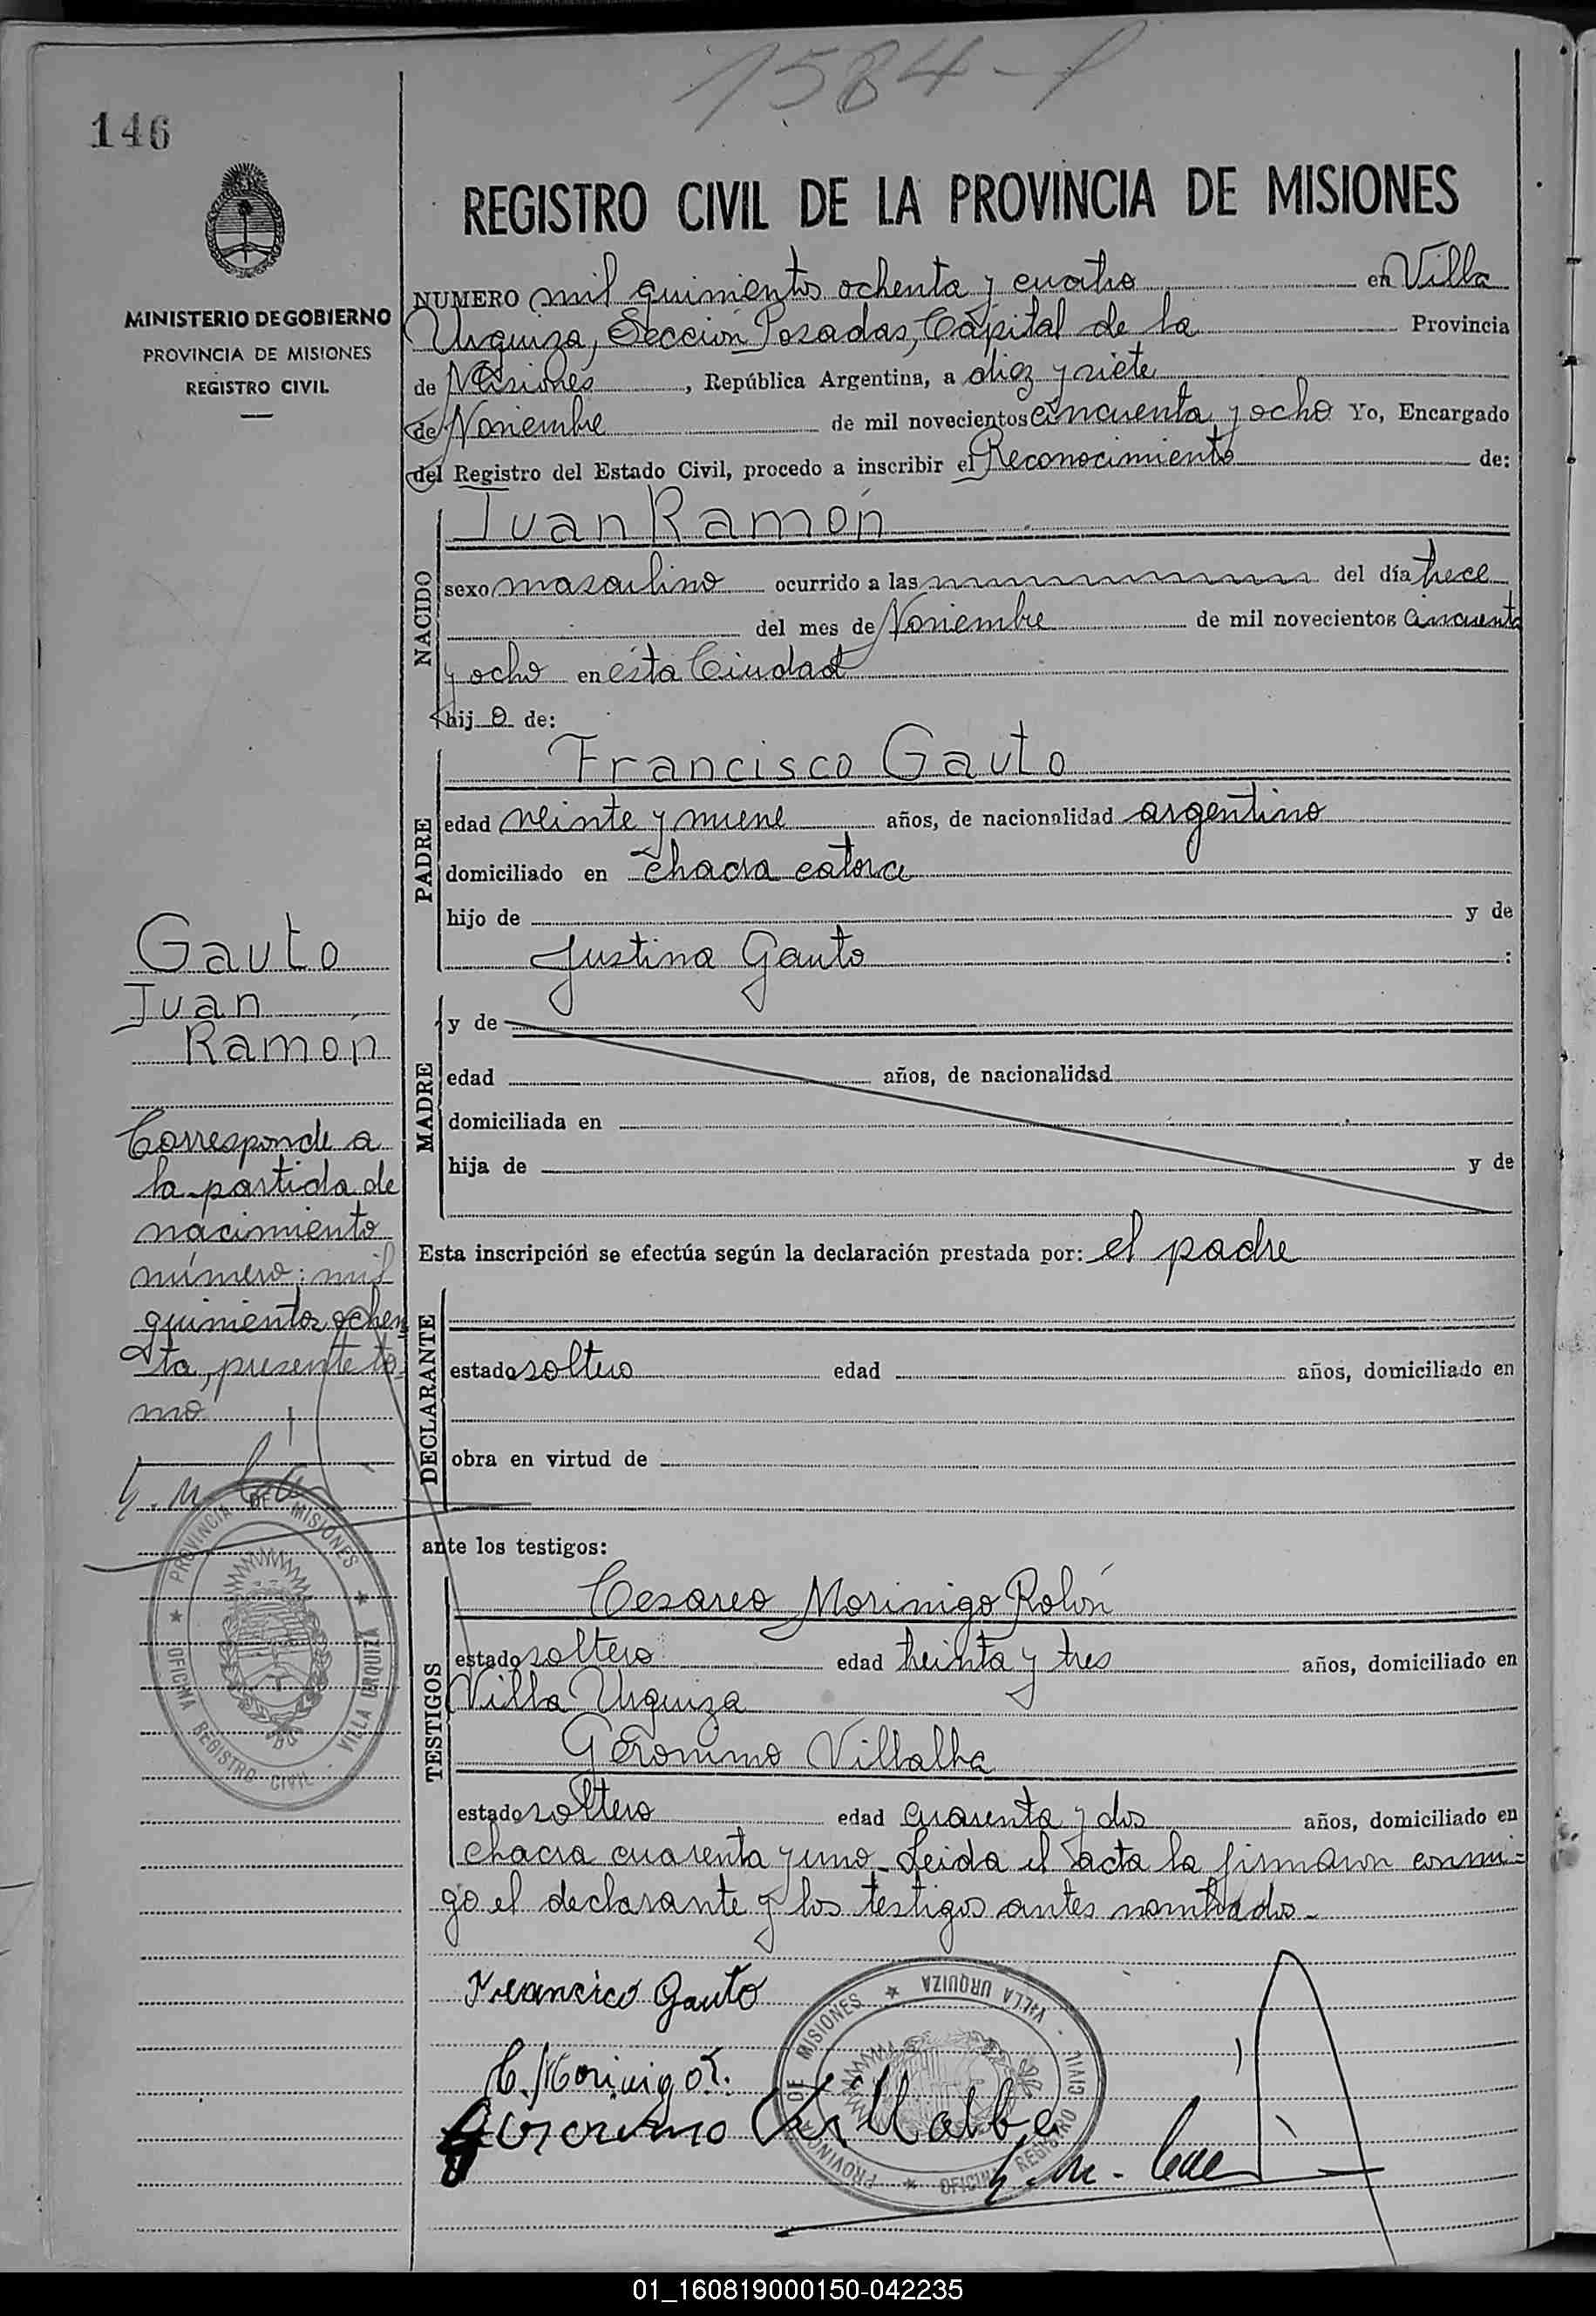 1584-f
146
REGISTRO CIVIL DE LA PROVINCIA DE MISIONES
MINISTERIO DE GOBIERNO
PROVINCIA DE MISIONES
REGISTRO CIVIL
NUMERO mil quinientos ochenta y cuatro en Villa
Urquiza, Sección Posadas, Capital de la Provincia
de Misiones, República Argentina, a diez y siete
de Noviembre de mil novecientos cincuenta y ocho Yo, Encargado
del Registro del Estado Civil, procedo a inscribir el Reconocimiento de:
NACIDO
Juan Ramón
sexo masculino ocurrido a las del día trece
del mes de Noviembre de mil novecientos cincuenta
y ocho en ésta Ciudad
hijo de:
PADRE
Francisco Gauto
edad veinte y nueve años, de nacionalidad argentino
domiciliado en chacra catorce
hijo de y de
Justina Gauto :
MADRE
y de
edad años, de nacionalidad
domiciliada en
hija de y de
Esta inscripción se efectúa según la declaración prestada por: el padre
DECLARANTE
estado soltero edad años, domiciliado en
obra en virtud de
ante los testigos:
TESTIGOS
Cesareo Morinigo Rolón
estado soltero edad treinta y tres años, domiciliado en
Villa Urquiza
Gerónimo Villalba
estado soltero edad cuarenta y dos años, domiciliado en
chacra cuarenta y uno. Leida el acta la firmaron conmi-
go el declarante y los testigos antes nombrados.
Gauto
Juan
Ramón
Corresponde a
la partida de
nacimiento
número: mil
quinientos ochen
ta, presente to-
mo
PROVINCIA DE MISIONES
OFICINA REGISTRO CIVIL - VILLA URQUIZA
Francisco Gauto
C. Morinigo R.
Geronimo Villalba
PROVINCIA DE MISIONES
OFICINA REGISTRO CIVIL - VILLA URQUIZA
01_160819000150-042235